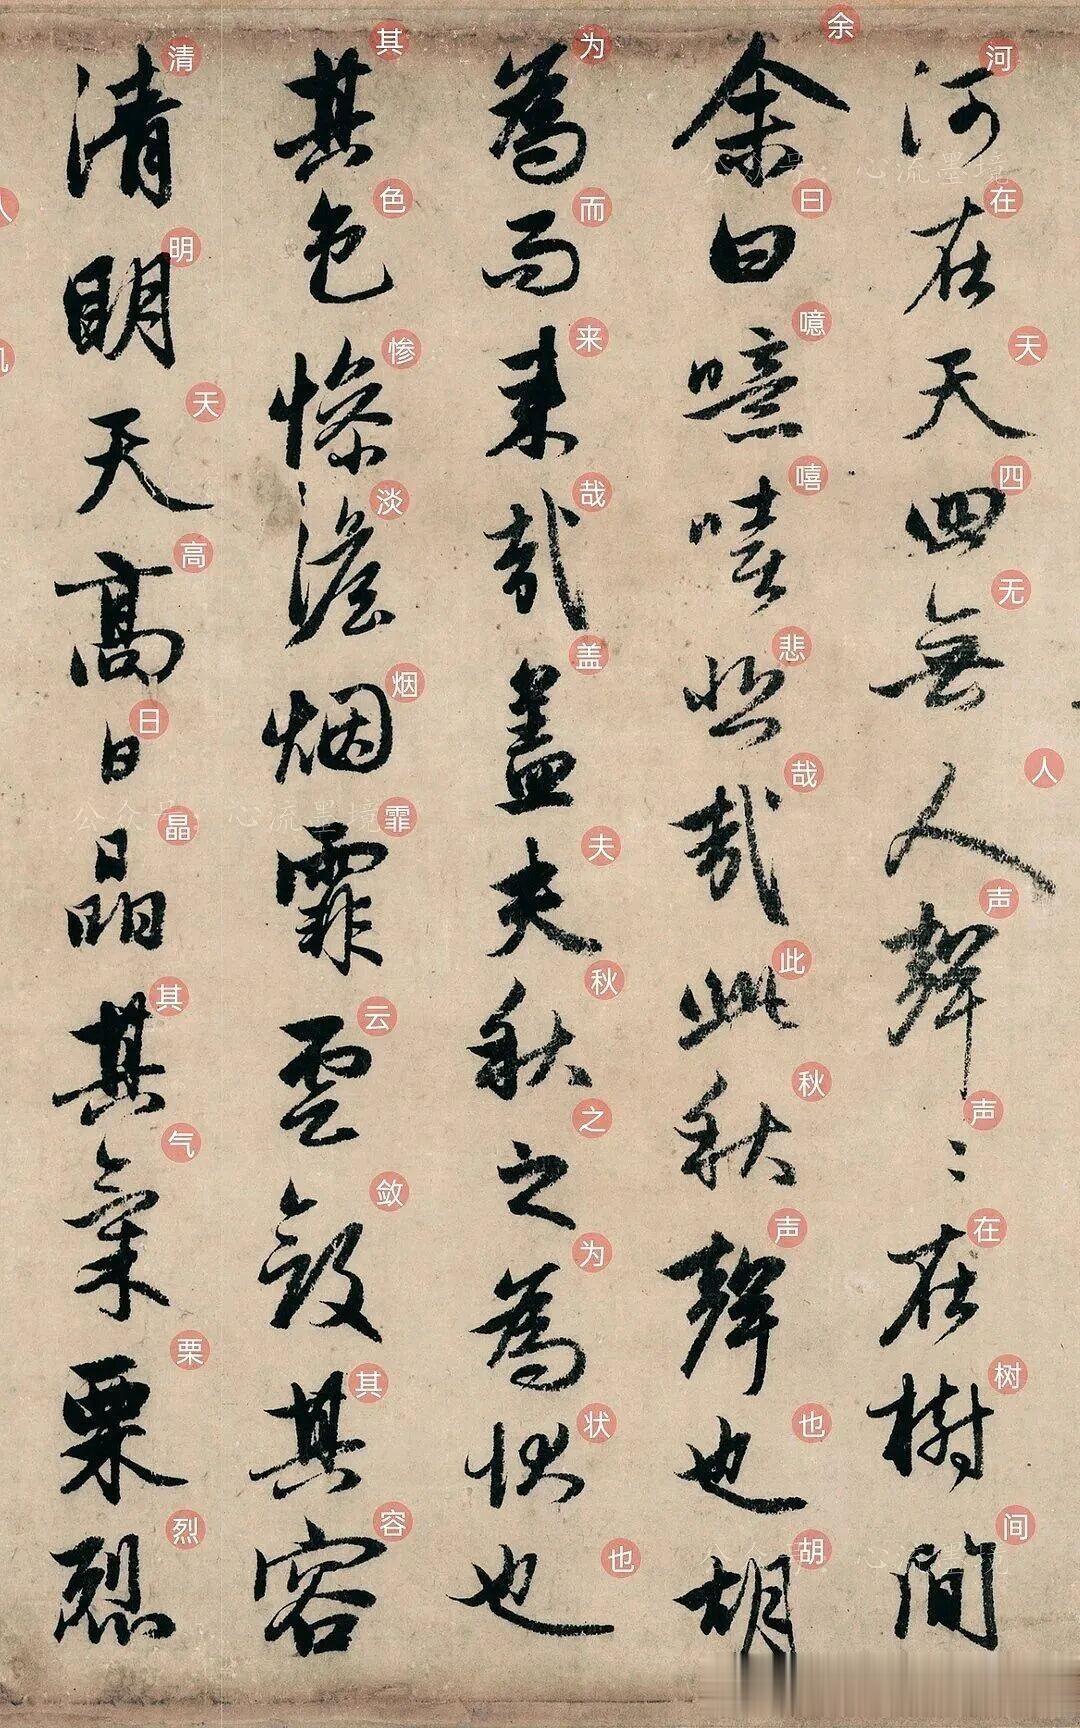 河在天四無人聲〻在樹間
余曰噫嘻悲哉此秋聲也胡
為而来哉盖夫秋之為狀也
其色慘澹烟霏雲斂其容
清明天高日晶其氣栗烈
河在天四无人声声在树间
余曰噫嘻悲哉此秋声也胡
为而来哉盖夫秋之为状也
其色惨淡烟霏云敛其容
清明天高日晶其气栗烈
公众号：心流墨境
公众号：心流墨境